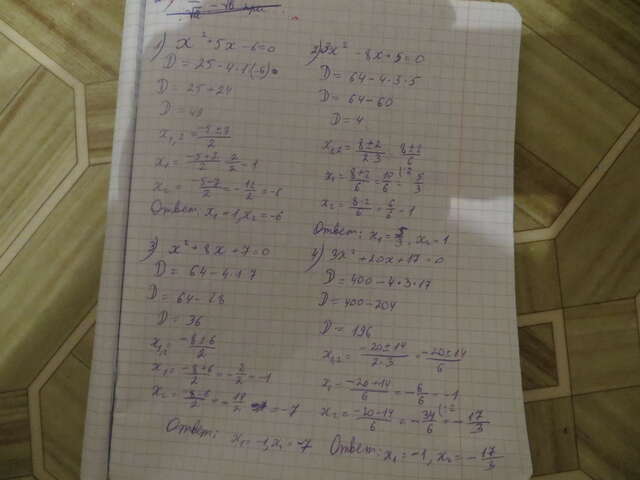 1) x² + 5x - 6 = 0
D = 25 - 4·1(-6)
D = 25 + 24
D = 49
x₁,₂ = (-5 ± 7)/2
x₁ = (-5+7)/2 = 2/2 = 1
x₂ = (-5-7)/2 = -12/2 = -6
Ответ: x₁ = 1, x₂ = -6
2) 3x² - 8x + 5 = 0
D = 64 - 4·3·5
D = 64 - 60
D = 4
x₁,₂ = (8 ± 2)/(2·3) = (8 ± 2)/6
x₁ = (8+2)/6 = 10/6 (:2 = 5/3
x₂ = (8-2)/6 = 6/6 = 1
Ответ: x₁ = 5/3, x₂ = 1
3) x² + 8x + 7 = 0
D = 64 - 4·1·7
D = 64 - 28
D = 36
x₁,₂ = (-8 ± 6)/2
x₁ = (-8+6)/2 = -2/2 = -1
x₂ = (-8-6)/2 = -14/2 = -7
Ответ: x₁ = -1, x₂ = -7
4) 3x² + 20x + 17 = 0
D = 400 - 4·3·17
D = 400 - 204
D = 196
x₁,₂ = (-20 ± 14)/(2·3) = (-20 ± 14)/6
x₁ = (-20+14)/6 = -6/6 = -1
x₂ = (-20-14)/6 = -34/6 (:2 = -17/3
Ответ: x₁ = -1, x₂ = -17/3